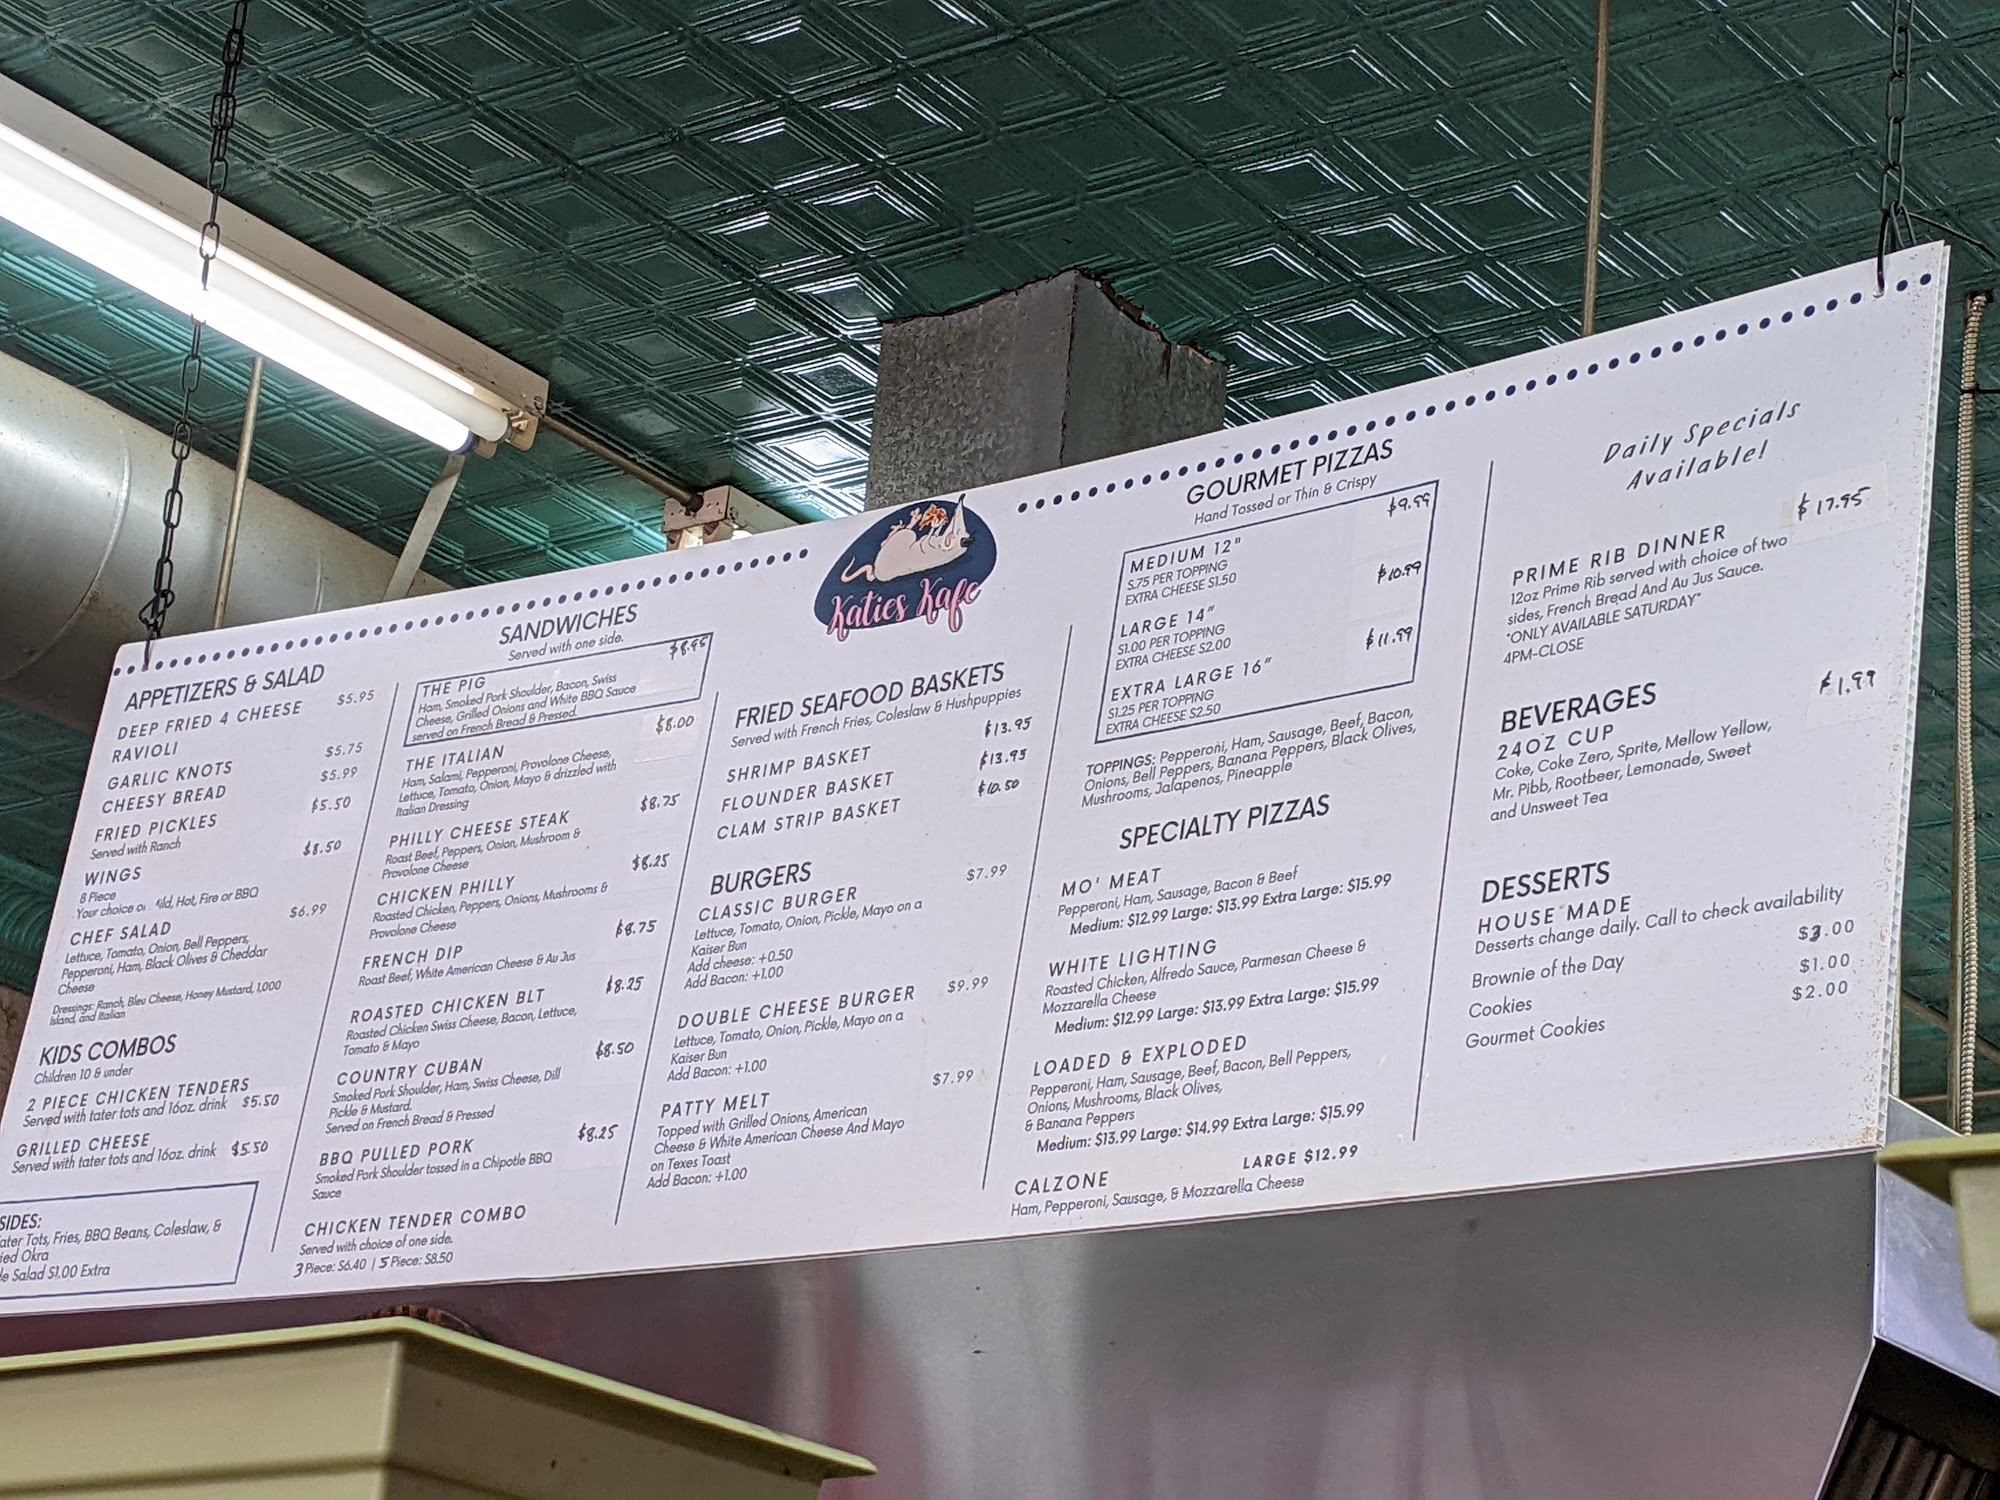 Katies Kafe
APPETIZERS & SALAD
DEEP FRIED 4 CHEESE $5.95
RAVIOLI
GARLIC KNOTS $5.75
CHEESY BREAD $5.99
FRIED PICKLES $5.50
Served with Ranch
WINGS $8.50
8 Piece
Your choice of ild, Hot, Fire or BBQ
CHEF SALAD $6.99
Lettuce, Tomato, Onion, Bell Peppers,
Pepperoni, Ham, Black Olives & Cheddar
Cheese
Dressings: Ranch, Bleu Cheese, Honey Mustard, 1,000
Island, and Italian
KIDS COMBOS
Children 10 & under
2 PIECE CHICKEN TENDERS
Served with tater tots and 16oz. drink $5.50
GRILLED CHEESE
Served with tater tots and 16oz. drink $5.50
SIDES:
ater Tots, Fries, BBQ Beans, Coleslaw, &
ied Okra
e Salad $1.00 Extra
SANDWICHES
Served with one side.
THE PIG $8.95
Ham, Smoked Pork Shoulder, Bacon, Swiss
Cheese, Grilled Onions and White BBQ Sauce
served on French Bread & Pressed.
THE ITALIAN $8.00
Ham, Salami, Pepperoni, Provolone Cheese,
Lettuce, Tomato, Onion, Mayo & drizzled with
Italian Dressing
PHILLY CHEESE STEAK $8.75
Roast Beef, Peppers, Onion, Mushroom &
Provolone Cheese
CHICKEN PHILLY $8.25
Roasted Chicken, Peppers, Onions, Mushrooms &
Provolone Cheese
FRENCH DIP $8.75
Roast Beef, White American Cheese & Au Jus
ROASTED CHICKEN BLT $8.25
Roasted Chicken Swiss Cheese, Bacon, Lettuce,
Tomato & Mayo
COUNTRY CUBAN $8.50
Smoked Pork Shoulder, Ham, Swiss Cheese, Dill
Pickle & Mustard.
Served on French Bread & Pressed
BBQ PULLED PORK $8.25
Smoked Pork Shoulder tossed in a Chipotle BBQ
Sauce
CHICKEN TENDER COMBO
Served with choice of one side.
3 Piece: $6.40 | 5 Piece: $8.50
FRIED SEAFOOD BASKETS
Served with French Fries, Coleslaw & Hushpuppies
SHRIMP BASKET $13.95
FLOUNDER BASKET $13.95
CLAM STRIP BASKET $10.50
BURGERS
CLASSIC BURGER $7.99
Lettuce, Tomato, Onion, Pickle, Mayo on a
Kaiser Bun
Add cheese: +0.50
Add Bacon: +1.00
DOUBLE CHEESE BURGER $9.99
Lettuce, Tomato, Onion, Pickle, Mayo on a
Kaiser Bun
Add Bacon: +1.00
PATTY MELT $7.99
Topped with Grilled Onions, American
Cheese & White American Cheese And Mayo
on Texes Toast
Add Bacon: +1.00
GOURMET PIZZAS
Hand Tossed or Thin & Crispy
MEDIUM 12" $9.99
$.75 PER TOPPING
EXTRA CHEESE $1.50
LARGE 14" $10.99
$1.00 PER TOPPING
EXTRA CHEESE $2.00
EXTRA LARGE 16" $11.99
$1.25 PER TOPPING
EXTRA CHEESE $2.50
TOPPINGS: Pepperoni, Ham, Sausage, Beef, Bacon,
Onions, Bell Peppers, Banana Peppers, Black Olives,
Mushrooms, Jalapenos, Pineapple
SPECIALTY PIZZAS
MO' MEAT
Pepperoni, Ham, Sausage, Bacon & Beef
Medium: $12.99 Large: $13.99 Extra Large: $15.99
WHITE LIGHTING
Roasted Chicken, Alfredo Sauce, Parmesan Cheese &
Mozzarella Cheese
Medium: $12.99 Large: $13.99 Extra Large: $15.99
LOADED & EXPLODED
Pepperoni, Ham, Sausage, Beef, Bacon, Bell Peppers,
Onions, Mushrooms, Black Olives,
& Banana Peppers
Medium: $13.99 Large: $14.99 Extra Large: $15.99
CALZONE LARGE $12.99
Ham, Pepperoni, Sausage, & Mozzarella Cheese
Daily Specials
Available!
PRIME RIB DINNER $17.95
12oz Prime Rib served with choice of two
sides, French Bread And Au Jus Sauce.
*ONLY AVAILABLE SATURDAY*
4PM-CLOSE
BEVERAGES $1.99
24OZ CUP
Coke, Coke Zero, Sprite, Mellow Yellow,
Mr. Pibb, Rootbeer, Lemonade, Sweet
and Unsweet Tea
DESSERTS
HOUSE MADE
Desserts change daily. Call to check availability
Brownie of the Day $3.00
Cookies $1.00
Gourmet Cookies $2.00